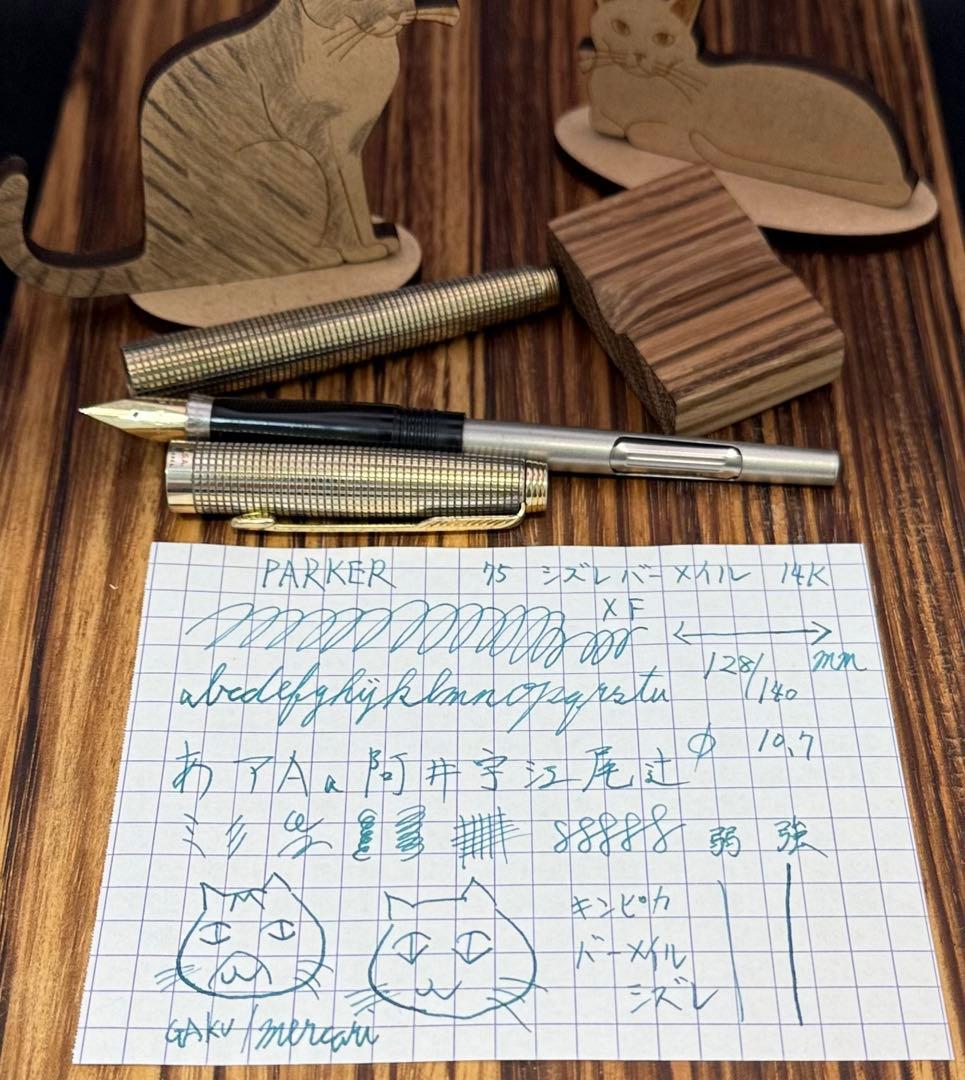 PARKER 75 シズレバーメイル 14K
XF
128/140 mm
abcdefghijklmnopqrstu
φ 10.7
あアAa阿井宇江尾辻
弱 強
キンピカ
バーメイル
シズレ
GAKU/mercari